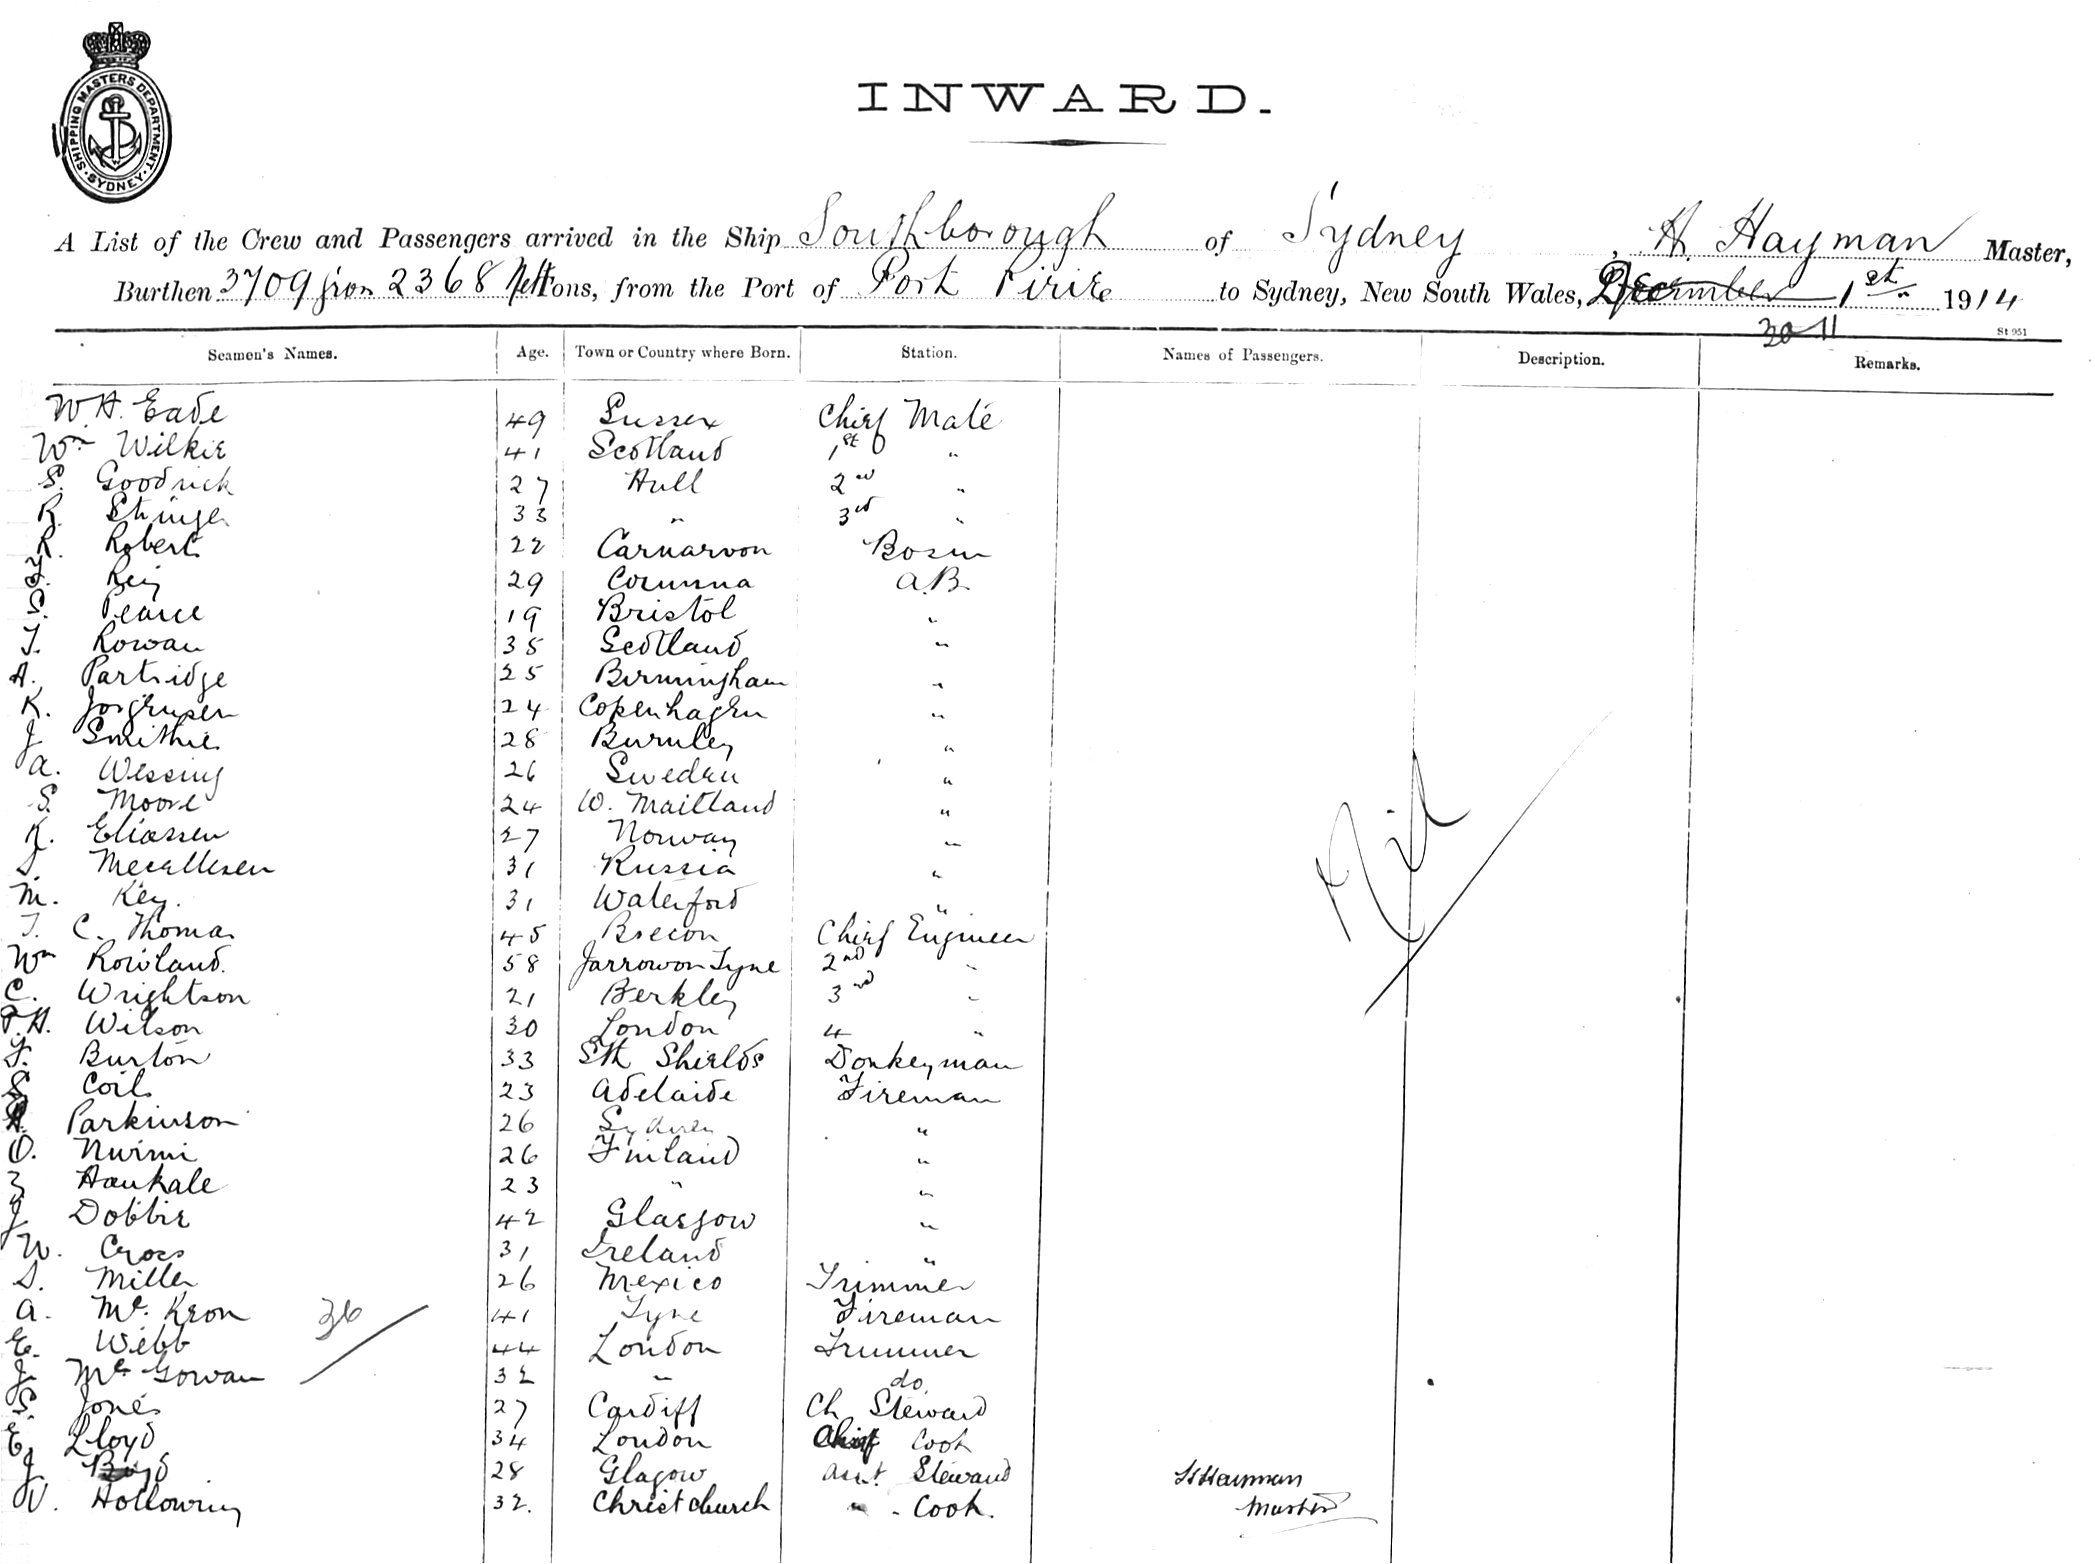 SHIPPING MASTERS DEPARTMENT
SYDNEY
INWARD.
A List of the Crew and Passengers arrived in the Ship Southborough of Sydney, H. Hayman Master,
Burthen 3709 2368 Nett Tons, from the Port of Port Pirie to Sydney, New South Wales, December 1st 1914
30 11
St 951
Seamen's Names. Age. Town or Country where Born. Station. Names of Passengers. Description. Remarks.
W.H. Eade 49 Sussex Chief Mate
Wm Wilkie 41 Scotland 1st "
S. Goodrick 27 Hull 2nd "
R. Stringer 33 " 3rd "
R. Roberts 22 Carnarvon Bosun
Rey 29 Corunna A.B.
Pearce 19 Bristol "
T. Rowan 35 Scotland "
A. Partridge 25 Birmingham "
K. Jorgensen 24 Copenhagen "
J Smithies 28 Burnley "
A. Wessing 26 Sweden "
S. Moore 24 W. Maitland "
K. Eliassen 27 Norway "
31 Russia "
M. Key. 31 Waterford "
T. C. Thomas 45 Brecon Chief Engineer
Wm Rowland. 58 Jarrow on Tyne 2nd "
C. Wrightson 21 Berkley 3rd "
P.H. Wilson 30 London 4 "
T. Burton 33 Sth Shields Donkeyman
S. Coils 23 Adelaide Fireman
Parkinson 26 Sydney "
O. Nurmi 26 Finland "
Z Haukale 23 " "
J Dobbie 42 Glasgow "
W. Cross 31 Ireland "
S. Miller 26 Mexico Trimmer
A. Mc. Keon 41 Tyne Fireman
36
E. Webb 44 London Trimmer
J. Mc Gowan 32 " do
S. Jones 27 Cardiff Ch Steward
E. Lloyd 34 London Chief Cook
J Boyd 28 Glagow Asst. Steward
V. Holloway 32. Christchurch " - Cook.
Nil
H Hayman
Master